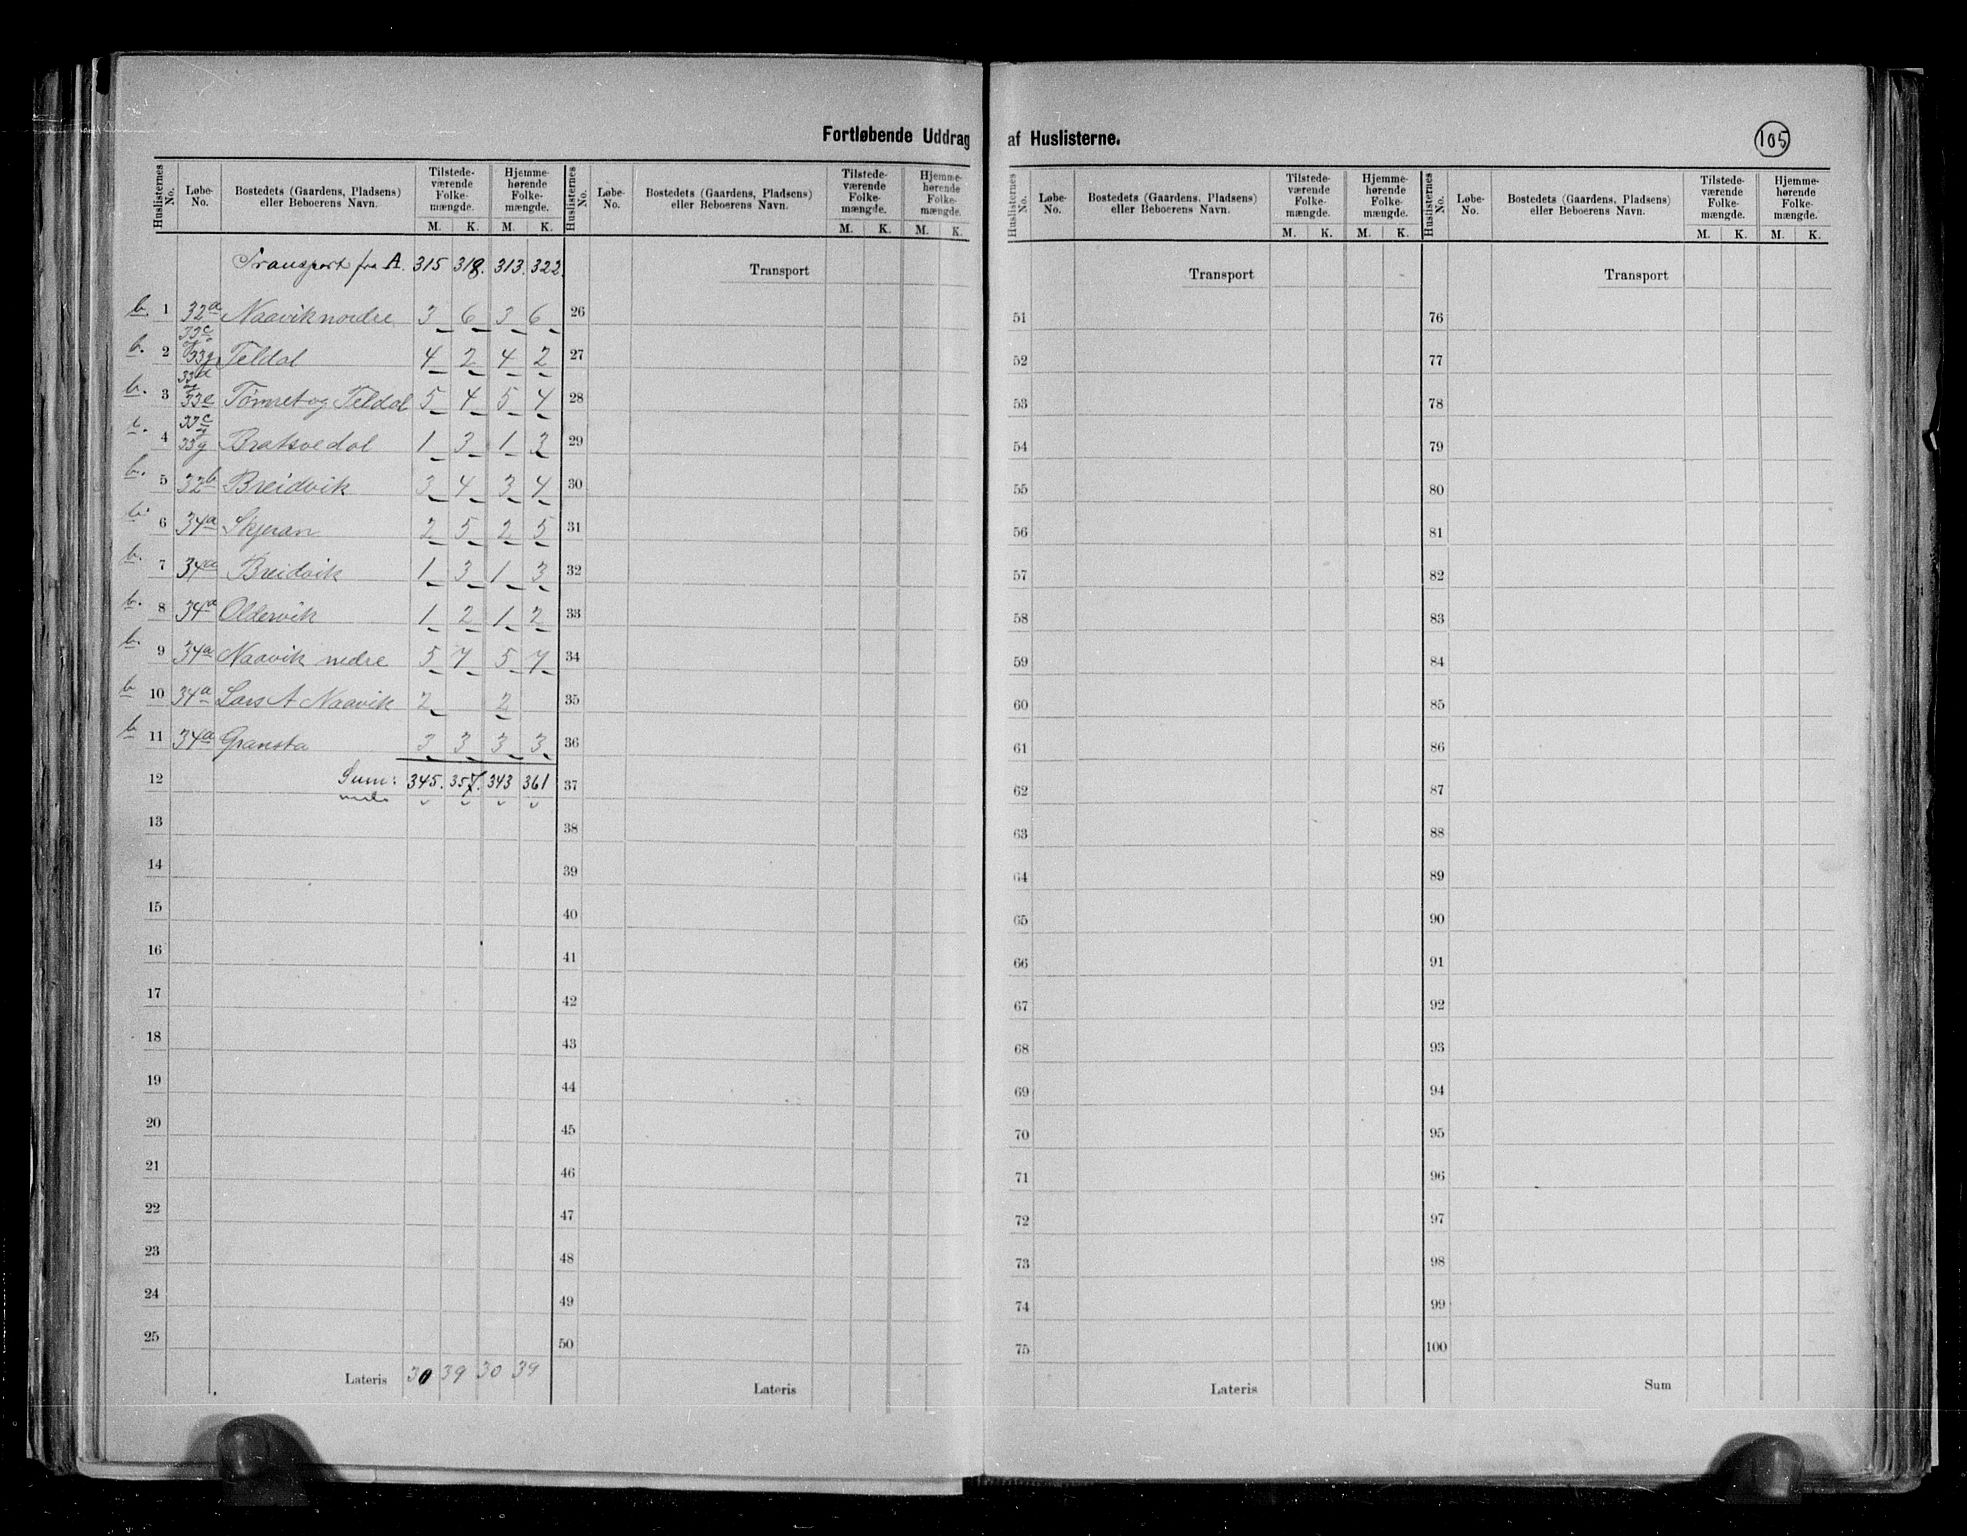 Fortløbende Uddrag af Huslisterne.
105
Huslisternes No. | Løbe-No. | Bostedets (Gaardens, Pladsens) eller Beboerens Navn. | Tilstedeværende Folkemængde. M. K. | Hjemmehørende Folkemængde. M. K.
Transport fra A. 315 318. 313. 322.
b. 1 32a Naavik nordre 3 6 3 6
b. 2 33c 33g Teldal 4 2 4 2
b. 3 33d 33e Tømret og Teldal 5 4 5 4
b. 4 33c 33g Bratsvedal 1 3 1 3
b. 5 32b Breidvik 3 4 3 4
b. 6 34a Skjeran 2 5 2 5
b. 7 34a Breidvik 1 3 1 3
b. 8 34a Oldervik 1 2 1 2
b. 9 34a Naavik nedre 5 7 5 7
b 10 34a Lars A Naavik 2 2
b 11 34a Gransta 3 3 3 3
12 Sum: 345. 357. 343 361
13
14
15
16
17
18
19
20
21
22
23
24
25
Lateris 30 39 30 39
Huslisternes No. | Løbe-No. | Bostedets (Gaardens, Pladsens) eller Beboerens Navn. | Tilstedeværende Folkemængde. M. K. | Hjemmehørende Folkemængde. M. K.
Transport
26
27
28
29
30
31
32
33
34
35
36
37
38
39
40
41
42
43
44
45
46
47
48
49
50
Lateris
Huslisternes No. | Løbe-No. | Bostedets (Gaardens, Pladsens) eller Beboerens Navn. | Tilstedeværende Folkemængde. M. K. | Hjemmehørende Folkemængde. M. K.
Transport
51
52
53
54
55
56
57
58
59
60
61
62
63
64
65
66
67
68
69
70
71
72
73
74
75
Lateris
Huslisternes No. | Løbe-No. | Bostedets (Gaardens, Pladsens) eller Beboerens Navn. | Tilstedeværende Folkemængde. M. K. | Hjemmehørende Folkemængde. M. K.
Transport
76
77
78
79
80
81
82
83
84
85
86
87
88
89
90
91
92
93
94
95
96
97
98
99
100
Sum